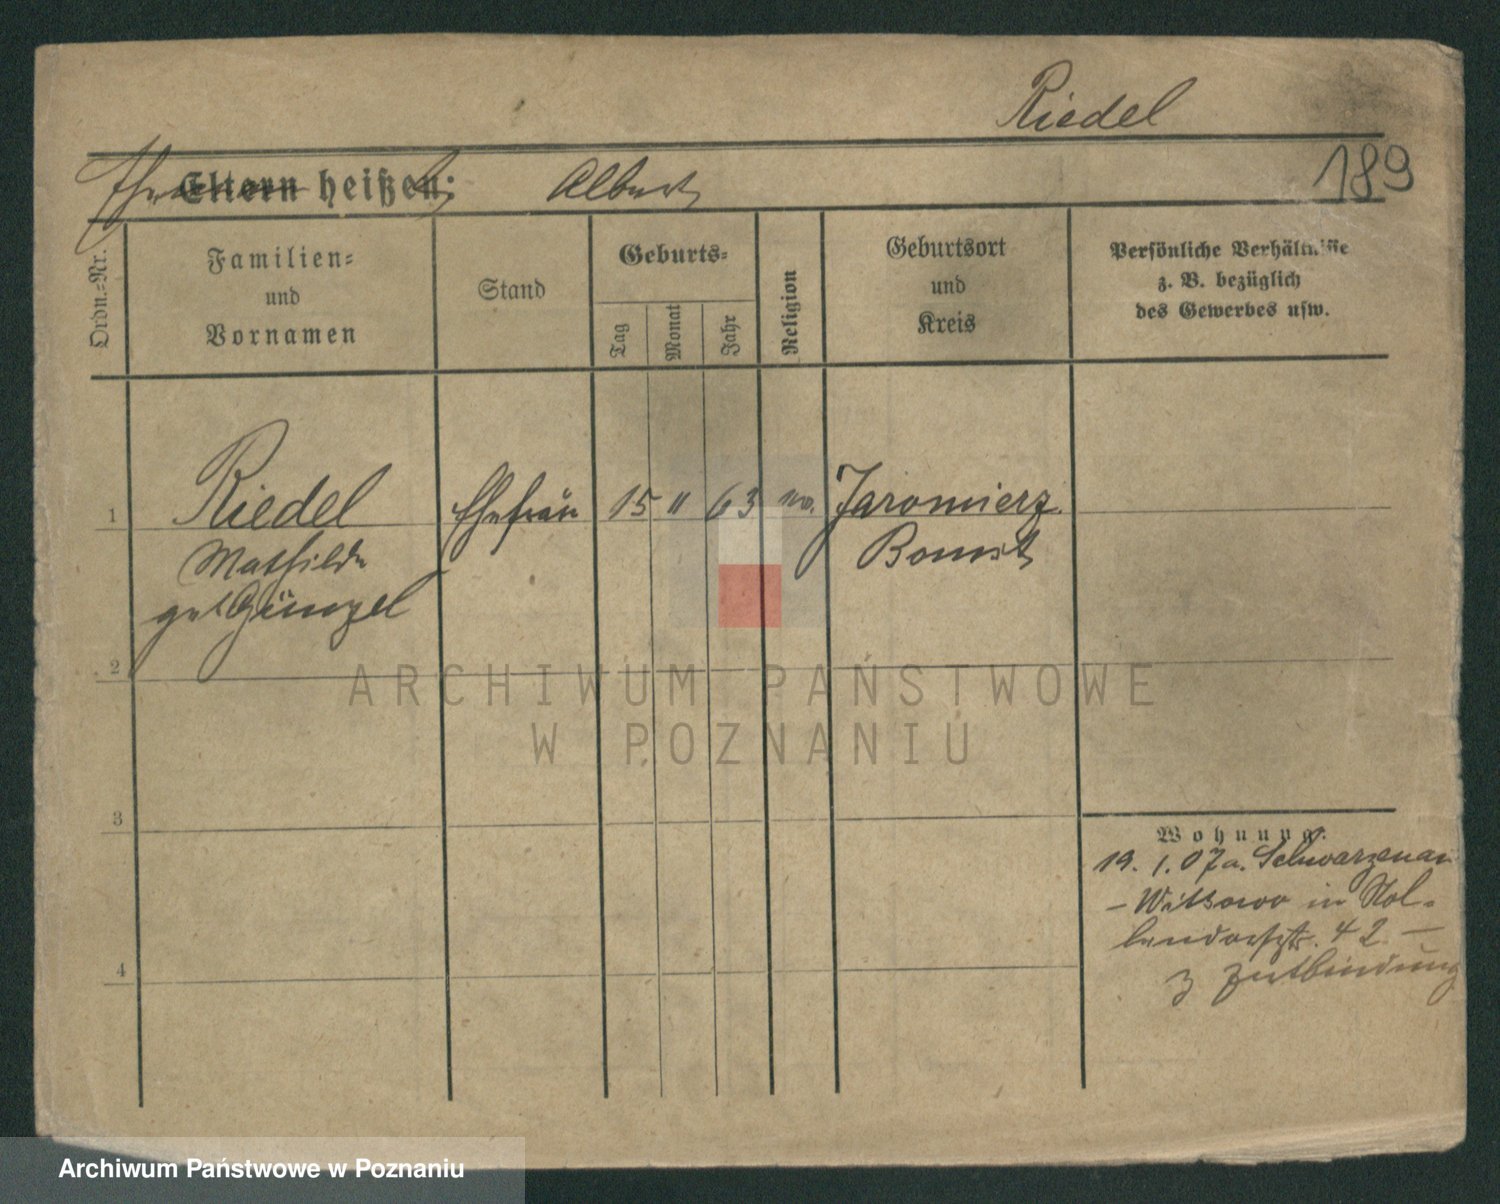 Riedel
189
Eltern heißen: Albert
Ordn.-Nr.
Familien-
und
Vornamen
Stand
Geburts-
Tag
Monat
Jahr
Religion
Geburtsort
und
Kreis
Persönliche Verhältnisse
z. B. bezüglich
des Gewerbes usw.
1
Riedel Ehefrau 15 11 63 ev. Jaromierz
Mathilde Bomst
geb Günzel
2
3
4
Wohnung.
19. 1. 07 a. Schwarzenau
- Witkowo in Hol-
lendorfstr. 42 -
z Entbindung
ARCHIWUM PAŃSTWOWE
W POZNANIU
Archiwum Państwowe w Poznaniu